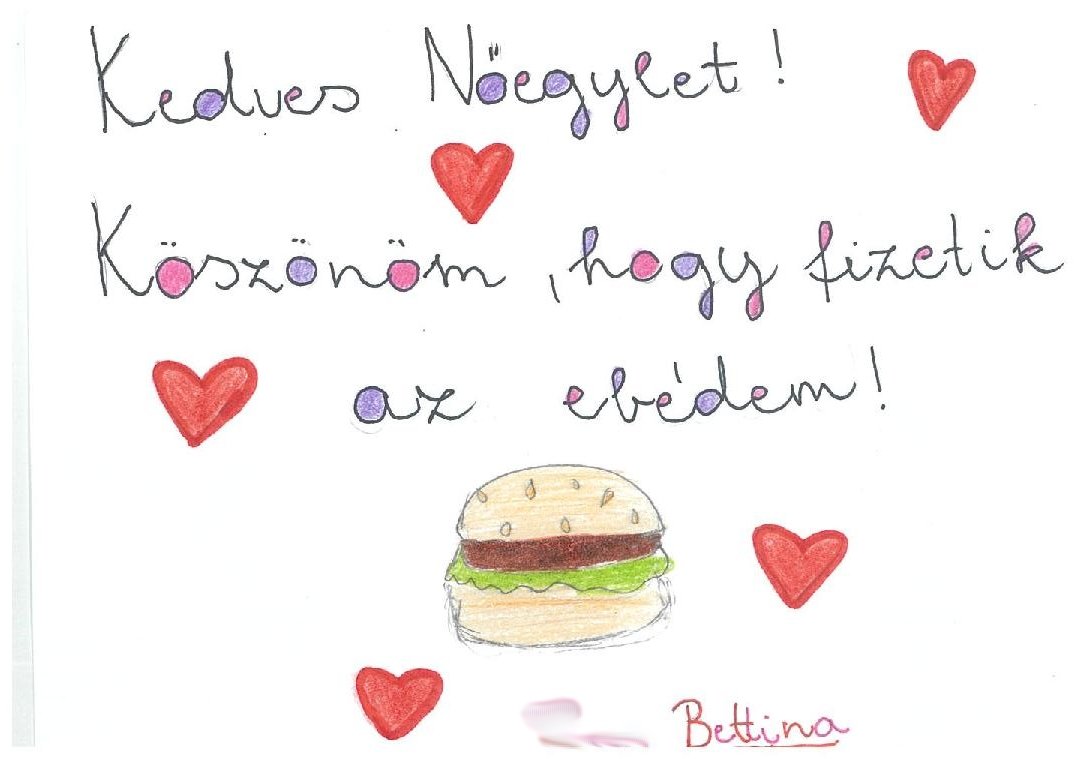 Kedves Nőegylet!
Köszönöm, hogy fizetik
az ebédem!
Bettina